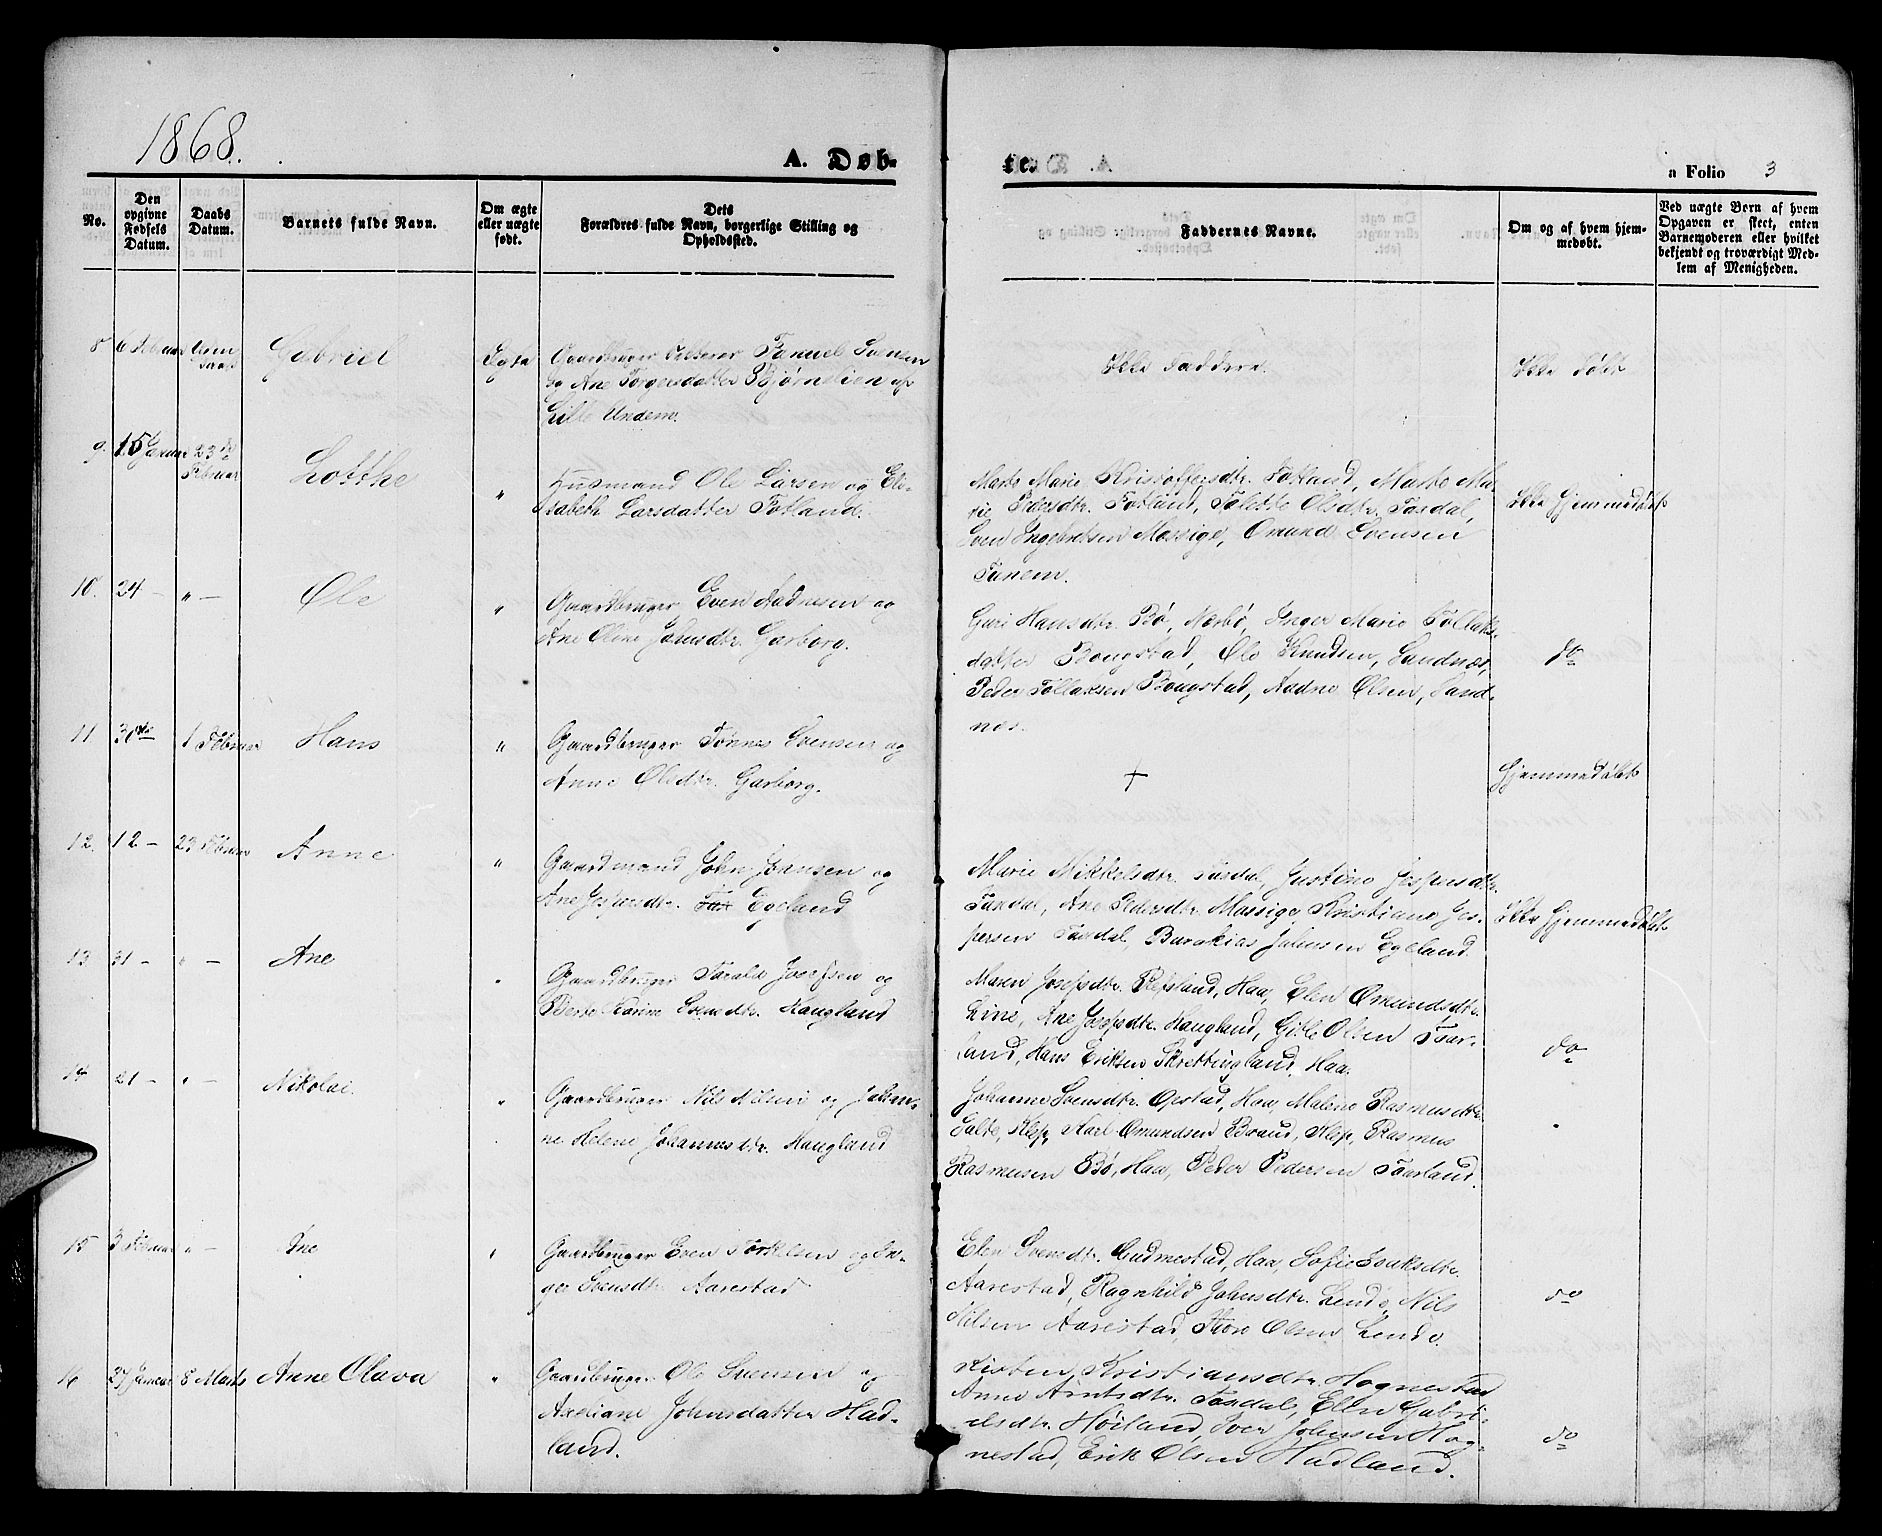 1868.
A. Døb-
te.
a Folio 3
No.
Den opgivne Fødsels Datum.
Daabs Datum.
Barnets fulde Navn.
Om ægte eller uægte født.
Dets Forældres fulde Navn, borgerlige Stilling og Opholdssted.
Faddernes Navne.
Om og af hvem hjemmedøbt.
Ved uægte Børn af hvem Opgaven er skeet, enten Barnemoderen eller hvilket bekjendt og troværdigt Medlem af Menigheden.
8 6 Februar Gabriel Egte
og Ane Torgersdatter Bjørnslien af
Lille Undem.
Ikke Faddere.
Ikke Døbt
9. 15 Januar 23de Februar Lotthe "
Husmand Ole Larsen og Eli-
sabeth Larsdatter Fotland.
Marte Marie Kristoffersdtr. Fotland, Marte Ma-
rie Pedersdtr. Fotland, Tolette Olsdtr. Tosdal,
Sven Ingebretsen Mossige, Omund Svensen
Tunem.
Ikke Hjemmedøbt
10. 24 - " - Ole "
Gaardbruger Even Aadnesen og
Ane Oline Johnsdtr. Garborg.
Guri Hansdtr. Bø, Nærbø, Inger Marie Tollaks-
datter Bougstad, Ole Knudsen, Sandnæs,
Peder Tollaksen Bougstad, Aadne Olsen, Sand-
nes.
do
11 30te 1 Februar Hans "
Gaardbruger Tønnes Svensen og
Anne Olsdtr. Garborg.
+
Hjemmedøbt
12. 12 - 23 Februar Anne "
Gaardmand John Johnsen og
Ane Jespersdtr. Egeland
Marie Mikkelsdtr. Tosdal, Justine Jespersdtr.
Tosdal, Ane Pedersdtr. Mossige, Kristiane Jes-
persen Tosdal, Barakias Johnsen Egeland.
Ikke Hjemmedøbt
13 31 - " - Ane "
Gaardbruger Tarald Josefsen og
Berte Karine Svensdtr. Haugland
Maren Josefsdtr. Refsland, Haa, Elen Omundsdtr.
Line, Ane Josefsdtr. Haugland, Gitle Olsen Taar-
land, Hans Eriksen Skrettingland, Haa.
do
14 21 - " - Nikolai. "
Gaardbruger Nils Nilsen og Johan-
ne Helene Johannesdtr. Haugland
Johanne Svensdtr. Opstad, Haa, Malene Rasmusdtr.
Salte, Klep, Karl Omundsen Braud, Klep, Rasmus
Rasmusen Bø, Haa, Peder Pedersen Taarland.
"
15 3 Februar " - Ane "
Gaardbruger Even Torkelsen og In-
ger Svensdtr. Aarestad
Elen Svensdtr. Gudmestad, Haa, Sofie Isaksdtr.
Aarestad, Ragnhild Johnsdtr. Lende, Nils
Nilsen Aarestad, Thore Olsen Lende.
do
16 27 Januar 8 Marts Anne Olava "
Gaardbruger Ole Svensen og
Axeliane Johnsdatter Had-
land.
Kisten Kristiansdtr. Hognestad
Anne Arntsdtr. Tosdal, Ellen Gabri-
elsdtr. Høiland, Iver Johnsen Hog-
nestad, Erik Olsen Hadland.
do